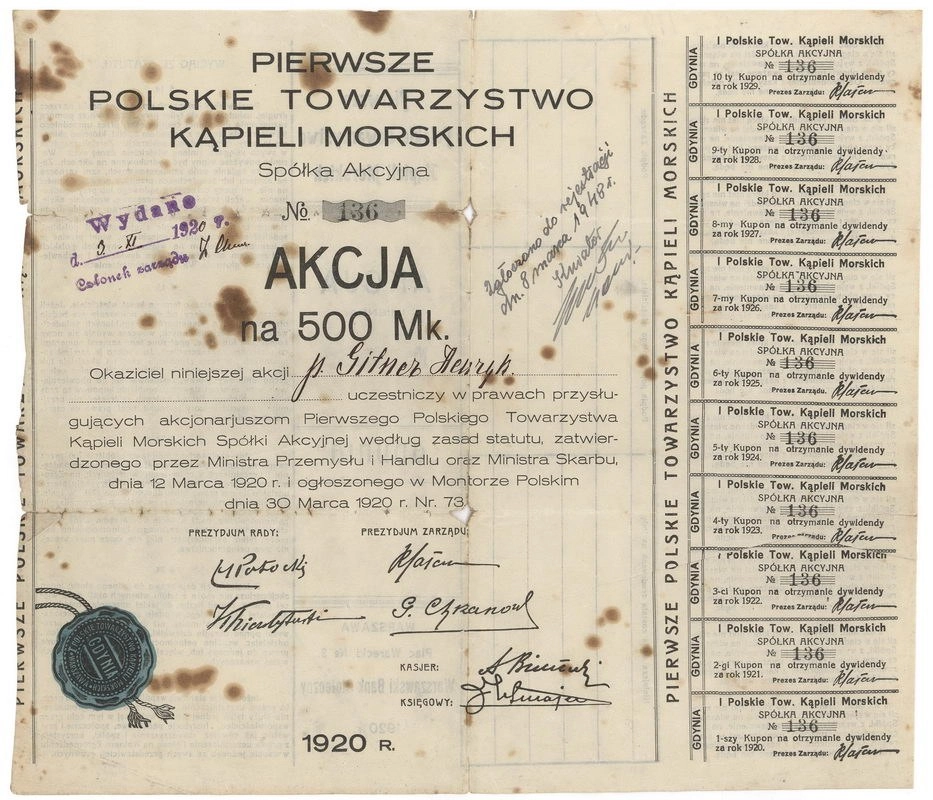 PIERWSZE
POLSKIE TOWARZYSTWO
KĄPIELI MORSKICH
Spółka Akcyjna
No. 136
Wydano
d. 3-XI 1920 r.
Członek zarządu
AKCJA
na 500 Mk.
Zgłoszono do rejestracji
dn. 8 marca 1948 r.
Okaziciel niniejszej akcji p. Gitner Henryk
uczestniczy w prawach przysłu-
gujących akcjonarjuszom Pierwszego Polskiego Towarzystwa
Kąpieli Morskich Spółki Akcyjnej według zasad statutu, zatwier-
dzonego przez Ministra Przemysłu i Handlu oraz Ministra Skarbu,
dnia 12 Marca 1920 r. i ogłoszonego w Montorze Polskim
dnia 30 Marca 1920 r. Nr. 73
PREZYDJUM RADY:
PREZYDJUM ZARZĄDU:
KASJER:
KSIĘGOWY:
GDYNIA
1920 R.
PIERWSZE POLSKIE TOWARZYSTWO KĄPIELI MORSKICH
GDYNIA
I Polskie Tow. Kąpieli Morskich
SPÓŁKA AKCYJNA
№ 136
10 ty Kupon na otrzymanie dywidendy
za rok 1929.
Prezes Zarządu:
GDYNIA
I Polskie Tow. Kąpieli Morskich
SPÓŁKA AKCYJNA
№ 136
9-ty Kupon na otrzymanie dywidendy
za rok 1928.
Prezes Zarządu:
GDYNIA
I Polskie Tow. Kąpieli Morskich
SPÓŁKA AKCYJNA
№ 136
8-my Kupon na otrzymanie dywidendy
za rok 1927.
Prezes Zarządu:
GDYNIA
I Polskie Tow. Kąpieli Morskich
SPÓŁKA AKCYJNA
№ 136
7-my Kupon na otrzymanie dywidendy
za rok 1926.
Prezes Zarządu:
GDYNIA
I Polskie Tow. Kąpieli Morskich
SPÓŁKA AKCYJNA
№ 136
6-ty Kupon na otrzymanie dywidendy
za rok 1925.
Prezes Zarządu:
GDYNIA
I Polskie Tow. Kąpieli Morskich
SPÓŁKA AKCYJNA
№ 136
5-ty Kupon na otrzymanie dywidendy
za rok 1924.
Prezes Zarządu:
GDYNIA
I Polskie Tow. Kąpieli Morskich
SPÓŁKA AKCYJNA
№ 136
4-ty Kupon na otrzymanie dywidendy
za rok 1923.
Prezes Zarządu:
GDYNIA
I Polskie Tow. Kąpieli Morskich
SPÓŁKA AKCYJNA
№ 136
3-ci Kupon na otrzymanie dywidendy
za rok 1922.
Prezes Zarządu:
GDYNIA
I Polskie Tow. Kąpieli Morskich
SPÓŁKA AKCYJNA
№ 136
2-gi Kupon na otrzymanie dywidendy
za rok 1921.
Prezes Zarządu:
GDYNIA
I Polskie Tow. Kąpieli Morskich
SPÓŁKA AKCYJNA
№ 136
1-szy Kupon na otrzymanie dywidendy
za rok 1920.
Prezes Zarządu: